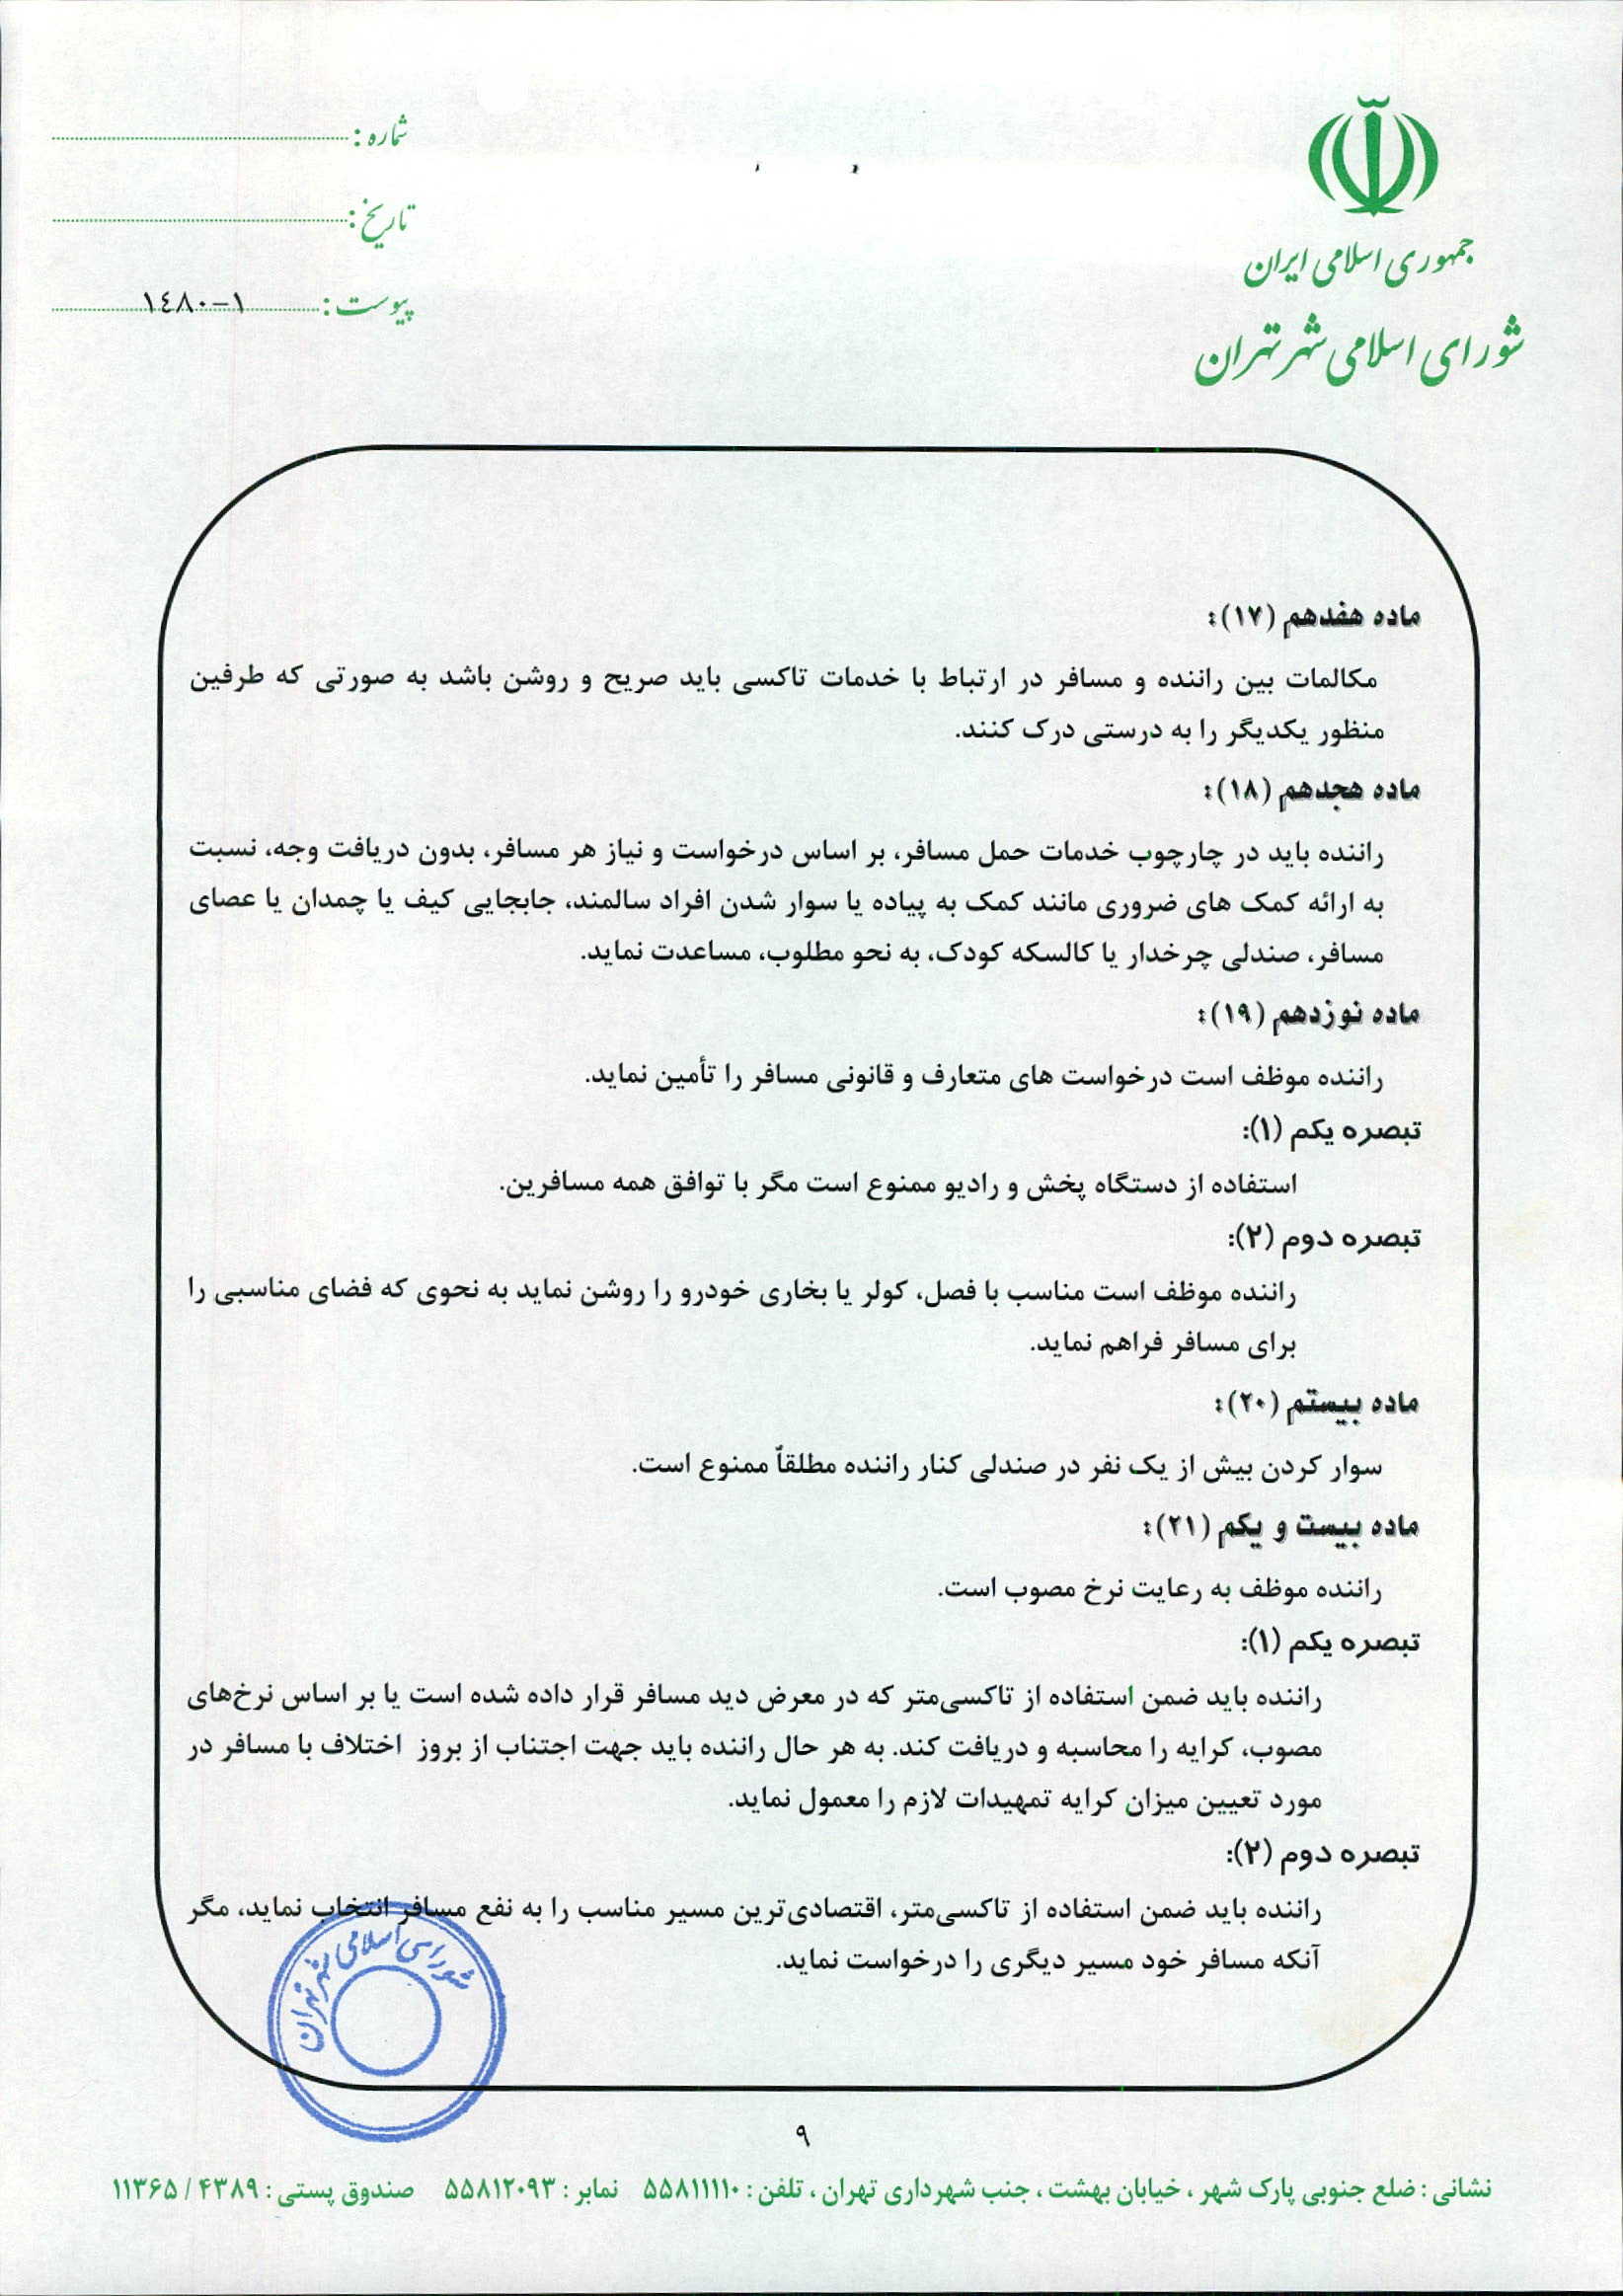 جمهوری اسلامی ایران
شورای اسلامی شهر تهران
شماره :
تاریخ :
پیوست : ١٤٨٠-١
ماده هفدهم (۱۷):
مکالمات بین راننده و مسافر در ارتباط با خدمات تاکسی باید صریح و روشن باشد به صورتی که طرفین
منظور یکدیگر را به درستی درک کنند.
ماده هجدهم (۱۸):
راننده باید در چارچوب خدمات حمل مسافر، بر اساس درخواست و نیاز هر مسافر، بدون دریافت وجه، نسبت
به ارائه کمک های ضروری مانند کمک به پیاده یا سوار شدن افراد سالمند، جابجایی کیف یا چمدان یا عصای
مسافر، صندلی چرخدار یا کالسکه کودک، به نحو مطلوب، مساعدت نماید.
ماده نوزدهم (۱۹):
راننده موظف است درخواست های متعارف و قانونی مسافر را تأمین نماید.
تبصره یکم (۱):
استفاده از دستگاه پخش و رادیو ممنوع است مگر با توافق همه مسافرین.
تبصره دوم (۲):
راننده موظف است مناسب با فصل، کولر یا بخاری خودرو را روشن نماید به نحوی که فضای مناسبی را
برای مسافر فراهم نماید.
ماده بیستم (۲۰):
سوار کردن بیش از یک نفر در صندلی کنار راننده مطلقاً ممنوع است.
ماده بیست و یکم (۲۱):
راننده موظف به رعایت نرخ مصوب است.
تبصره یکم (۱):
راننده باید ضمن استفاده از تاکسی‌متر که در معرض دید مسافر قرار داده شده است یا بر اساس نرخ‌های
مصوب، کرایه را محاسبه و دریافت کند. به هر حال راننده باید جهت اجتناب از بروز اختلاف با مسافر در
مورد تعیین میزان کرایه تمهیدات لازم را معمول نماید.
تبصره دوم (۲):
راننده باید ضمن استفاده از تاکسی‌متر، اقتصادی‌ترین مسیر مناسب را به نفع مسافر انتخاب نماید، مگر
آنکه مسافر خود مسیر دیگری را درخواست نماید.
شورای اسلامی شهر تهران
۹
نشانی : ضلع جنوبی پارک شهر ، خیابان بهشت ، جنب شهرداری تهران ، تلفن : ۵۵۸۱۱۱۱۰ نمابر : ۵۵۸۱۲۰۹۳ صندوق پستی : ۴۳۸۹ / ۱۱۳۶۵